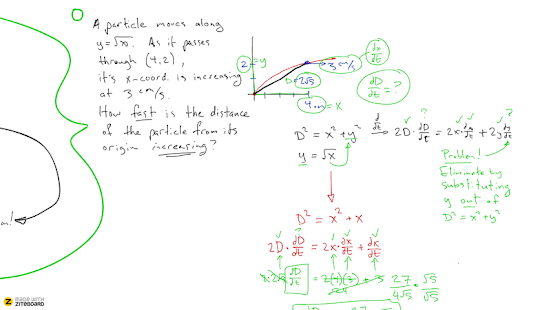 A particle moves along
y=√x. As it passes
through (4,2),
it's x-coord. is increasing
at 3 cm/s.
How fast is the distance
of the particle from its
origin increasing?
2 = y
D = 2√5
3 cm/s
dx/dt
dD/dt = ?
4 cm = x
D² = x² + y²
y = √x
d/dt
2D · dD/dt = 2x · dx/dt + 2y dy/dt
?
?
Problem!
Eliminate by
substituting
y out of
D² = x² + y²
D² = x² + x
?
2D · dD/dt = 2x · dx/dt + dx/dt
2·2√5 dD/dt = 2(4)(3) + 3
24
27/4√5 · √5/√5
MADE WITH
ZITEBOARD